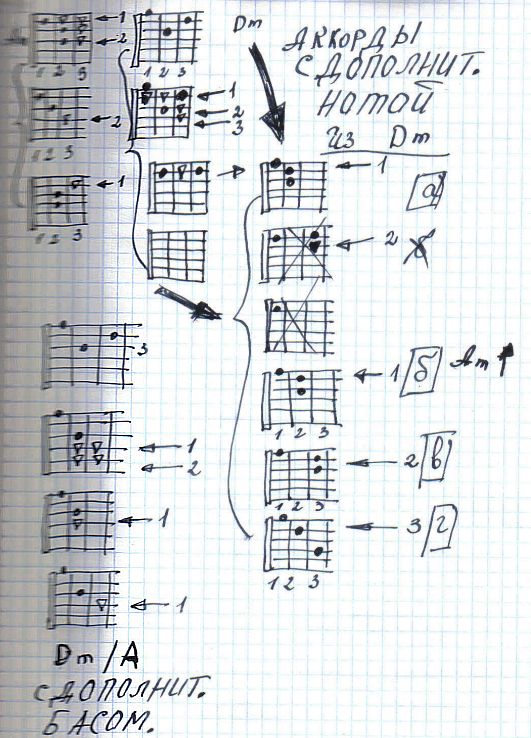 Dm
АККОРДЫ
С ДОПОЛНИТ.
НОТОЙ
ИЗ Dm
1
2
1 2 3
2
1 2 3
1
1 2 3
1 2 3
1
2
3
1
а
2 б
1 б Am
1 2 3
2 в
1 2 3
3 г
1 2 3
3
1
2
1
1
Dm/A
С ДОПОЛНИТ.
БАСОМ.